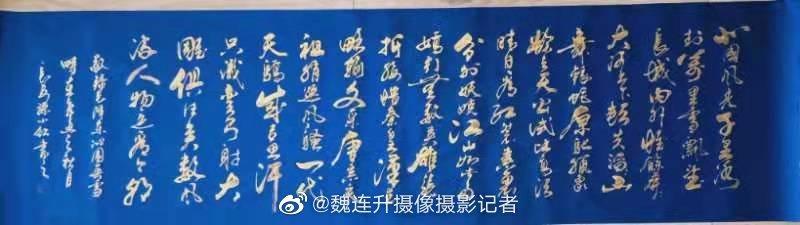 北国风光千里冰
封万里雪飘望
长城内外惟余莽
大河上下顿失滔滔山
舞银蛇原驰蜡象
欲与天公试比高须
晴日看红装素裹
分外妖娆江山如此多
娇引无数英雄竞
折腰惜秦皇汉武
略输文采唐宗宋
祖稍逊风骚一代
天骄成吉思汗
只识弯弓射大
雕俱往矣数风
流人物还看今朝
毛泽东沁园春雪
@魏连升摄像摄影记者